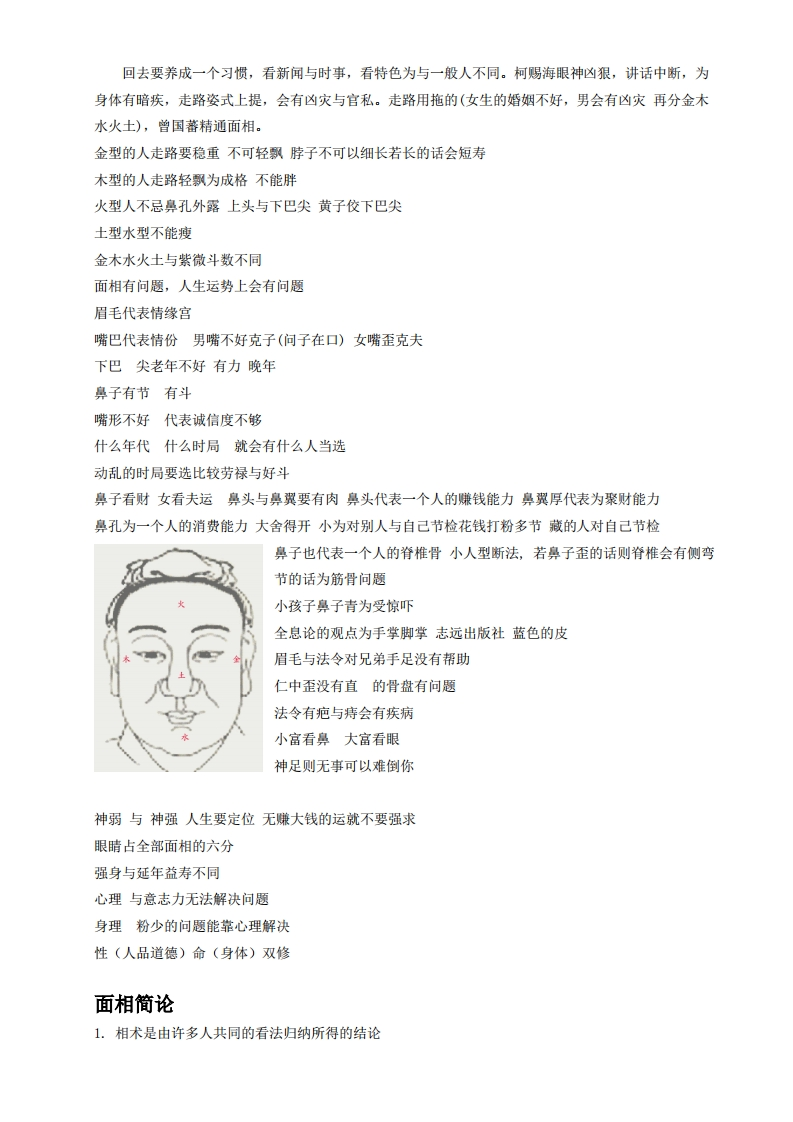 回去要养成一个习惯，看新闻与时事，看特色为与一般人不同。柯赐海眼神凶狠，讲话中断，为
身体有暗疾，走路姿式上提，会有凶灾与官私。走路用拖的(女生的婚姻不好，男会有凶灾 再分金木
水火土)，曾国蕃精通面相。
金型的人走路要稳重 不可轻飘 脖子不可以细长若长的话会短寿
木型的人走路轻飘为成格 不能胖
火型人不忌鼻孔外露 上头与下巴尖 黄子佼下巴尖
土型水型不能瘦
金木水火土与紫微斗数不同
面相有问题，人生运势上会有问题
眉毛代表情缘宫
嘴巴代表情份 男嘴不好克子(问子在口) 女嘴歪克夫
下巴 尖老年不好 有力 晚年
鼻子有节 有斗
嘴形不好 代表诚信度不够
什么年代 什么时局 就会有什么人当选
动乱的时局要选比较劳禄与好斗
鼻子看财 女看夫运 鼻头与鼻翼要有肉 鼻头代表一个人的赚钱能力 鼻翼厚代表为聚财能力
鼻孔为一个人的消费能力 大舍得开 小为对别人与自己节检花钱打粉多节 藏的人对自己节检
鼻子也代表一个人的脊椎骨 小人型断法，若鼻子歪的话则脊椎会有侧弯
节的话为筋骨问题
小孩子鼻子青为受惊吓
全息论的观点为手掌脚掌 志远出版社 蓝色的皮
眉毛与法令对兄弟手足没有帮助
仁中歪没有直 的骨盘有问题
法令有疤与痔会有疾病
小富看鼻 大富看眼
神足则无事可以难倒你
火
木
金
土
水
神弱 与 神强 人生要定位 无赚大钱的运就不要强求
眼睛占全部面相的六分
强身与延年益寿不同
心理 与意志力无法解决问题
身理 粉少的问题能靠心理解决
性（人品道德）命（身体）双修
面相简论
1. 相术是由许多人共同的看法归纳所得的结论